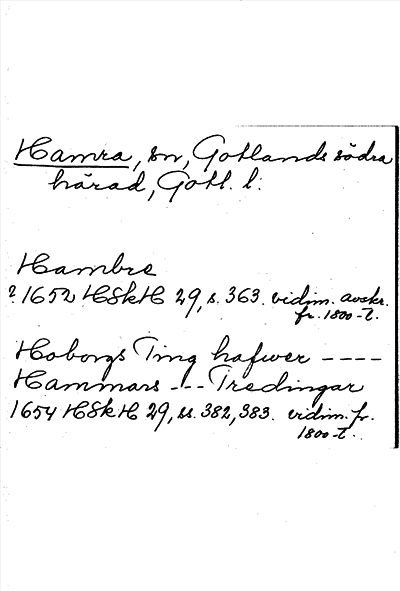 Hamra, sn, Gotlands södra
härad, Gotl. l.
Hambre
? 1652 HSkH 29, s. 363. vidim. avskr.
fr. 1800-t.
Hoborgs Ting hafwer ----
Hammars --- Tredingar
1654 HSkH 29, ss. 382, 383. vidim. fr.
1800-t.